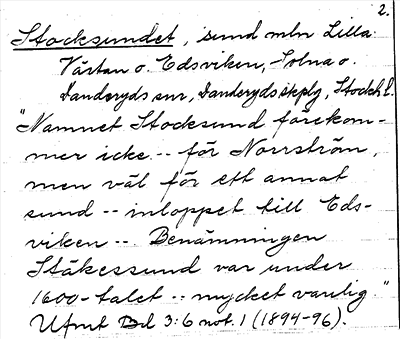 2.
Stocksundet, sund mln Lilla
Värtan o. Edsviken, Solna o.
Danderyds snr, Danderyds skplg, Stockh. l.
"Namnet Stocksund förekom-
mer icke -- för Norrström,
men väl för ett annat
sund -- inloppet till Eds-
viken -- Benämningen
Stäkessund var under
1600-talet -- mycket vanlig."
Ufmt Bd 3:6 not. 1 (1894-96).